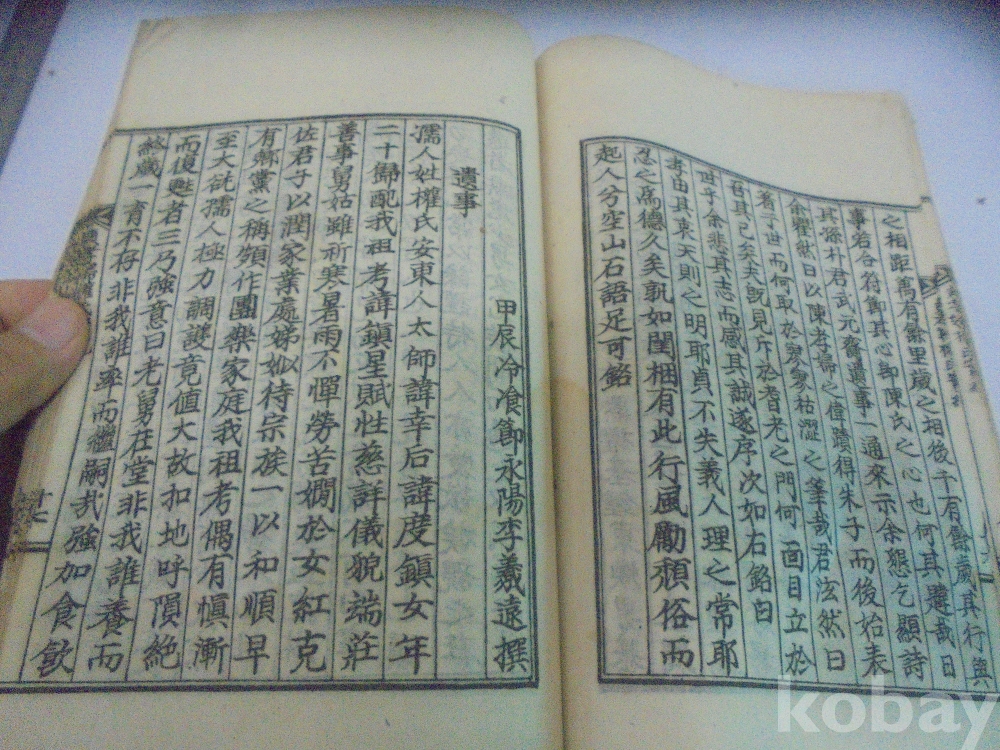 之相距萬有餘里歲之相後千有餘歲其行與
事若合符節其心卽陳氏之心也何其韙哉日
其孫朴君武元齎遺事一通來示余懇乞顯詩
余矍然曰以陳孝婦之偉蹟得朱子而後始表
著于世而何取於寥寥枯澀之筆哉君泫然曰
若其已矣夫旣見斥於耆老之門何面目立於
世乎余悲其志而感其誠遂序次如右銘曰
孝由其衷天則之明耶貞不失義人理之常耶
忍之爲德久矣孰如閨梱有此行風勵頹俗而
起人兮空山石語足可銘
甲辰冷飡節永陽李羲遠撰
遺事
孺人姓權氏安東人太師諱幸后諱度鎭女年
二十歸配我祖考諱鎭星賦性慈詳儀貌端莊
善事舅姑雖祈寒暑雨不憚勞苦嫺於女紅克
佐君子以潤家業處娣姒待宗族一以和順早
有鄕黨之稱頻作團樂家庭我祖考偶有愼漸
至大欲孺人極力調護竟值大故扣地呼隕絶
而復甦者三乃強意曰老舅在堂非我誰養而
終歲一育不存非我誰率而繼嗣哉强加食飮
kobay